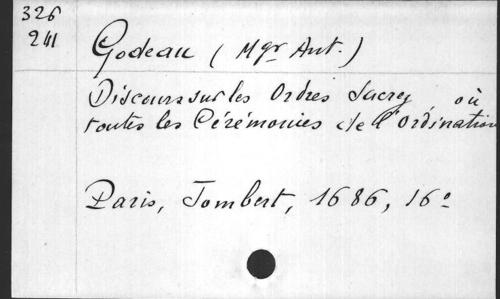 326
241
Godeau (Mgr Ant.)
Discours sur les Ordres Sacrez où
toutes les Cérémonies de l'ordination
Paris, Jombert, 1686, 16°